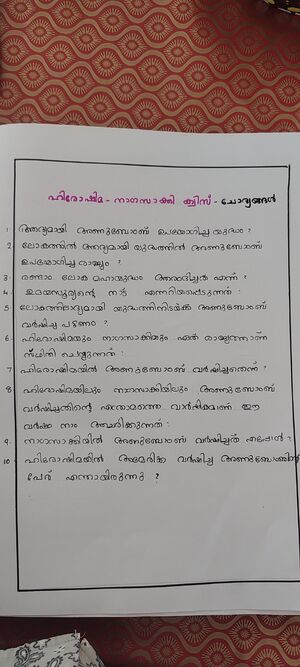 ഹിരോഷിമ - നാഗസാക്കി ക്വിസ് - ചോദ്യങ്ങൾ
1. ആദ്യമായി അണുബോംബ് ഉപയോഗിച്ച യുദ്ധം ?
2. ലോകത്തിൽ ആദ്യമായി യുദ്ധത്തിൽ അണുബോംബ്
ഉപയോഗിച്ച രാജ്യം ?
3. രണ്ടാം ലോക മഹായുദ്ധം ആരംഭിച്ചത് എന്ന് ?
4. ഉദയസൂര്യന്റെ നാട് എന്നറിയപ്പെടുന്നത് :
5. ലോകത്തിലാദ്യമായി യുദ്ധത്തിനിടയ്ക്ക് അണുബോംബ്
വർഷിച്ച പട്ടണം ?
6. ഹിരോഷിമയും നാഗസാക്കിയും ഏത് രാജ്യത്താണ്
സ്ഥിതി ചെയ്യുന്നത് :
7. ഹിരോഷിമയിൽ അണുബോംബ് വർഷിച്ചതെന്ന് ?
8. ഹിരോഷിമയിലും നാഗസാക്കിയിലും അണുബോംബ്
വർഷിച്ചതിന്റെ എത്രാമത്തെ വാർഷികമാണ് ഈ
വർഷം നാം ആചരിക്കുന്നത് :
9. നാഗസാക്കിയിൽ അണുബോംബ് വർഷിച്ചത് എപ്പോൾ ?
10. ഹിരോഷിമയിൽ അമേരിക്ക വർഷിച്ച അണുബോംബിന്റെ
പേര് എന്തായിരുന്നു ?